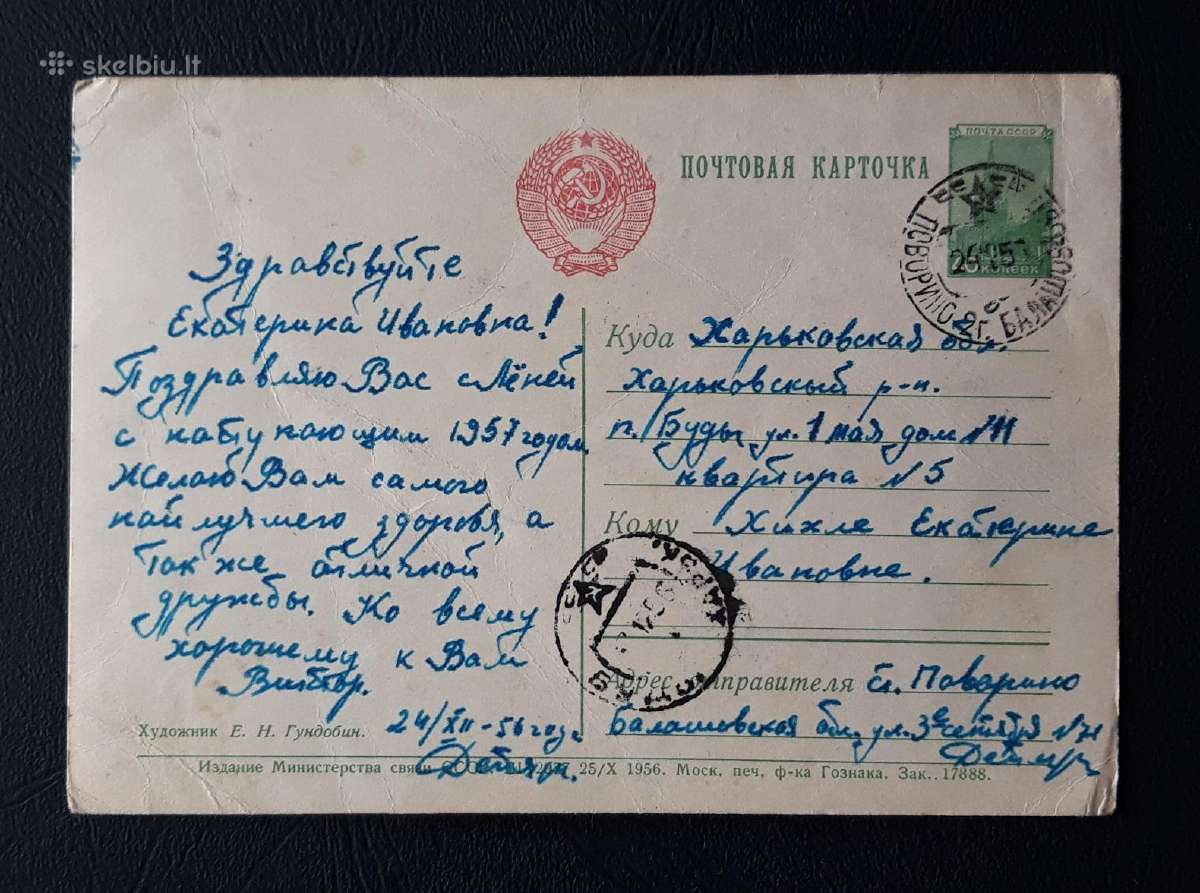 skelbiu.lt
ПОЧТОВАЯ КАРТОЧКА
ПОЧТА СССР
копеек
ПОВОРИНО 2 Г. БАЛАШОВСК
Здравствуйте
Екатерина Ивановна!
Поздравляю Вас с Лёней
с наступающим 1957 годом.
Желаю Вам самого
наилучшего здоровя, а
так же отличной
дружбы. Ко всему
хорошему к Вам
Виктор.
24/XII-56 год.
Куда Харьковская обл.
Харьковский р-н.
п. Буды ул. 1 мая дом
квартира N 5
Кому Хихле Екатерине
Ивановне.
Адрес отправителя ст. Поварино
Балашовская обл. ул. 3е
Художник Е. Н. Гундобин.
Издание Министерства связи 25/X 1956. Моск. печ. ф-ка Гознака. Зак. 17888.